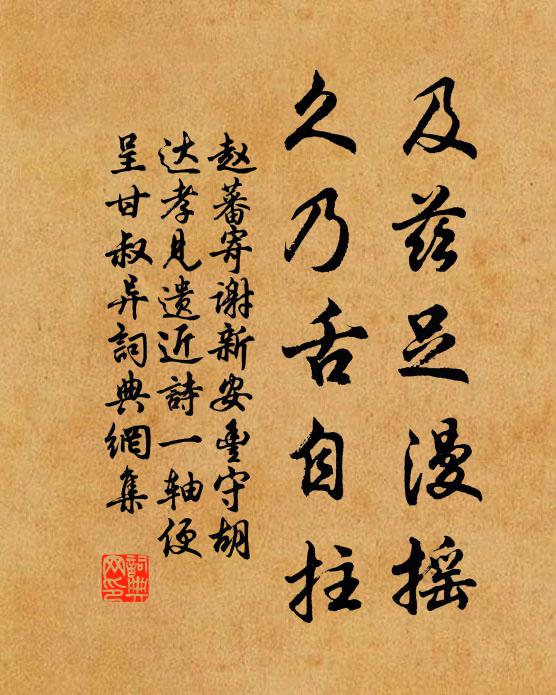 及兹足漫摇
久乃舌自拄
赵蕃寄谢新安豊守胡
达孝见遗近詩一轴便
呈甘叔异詞典網集
詞典網印